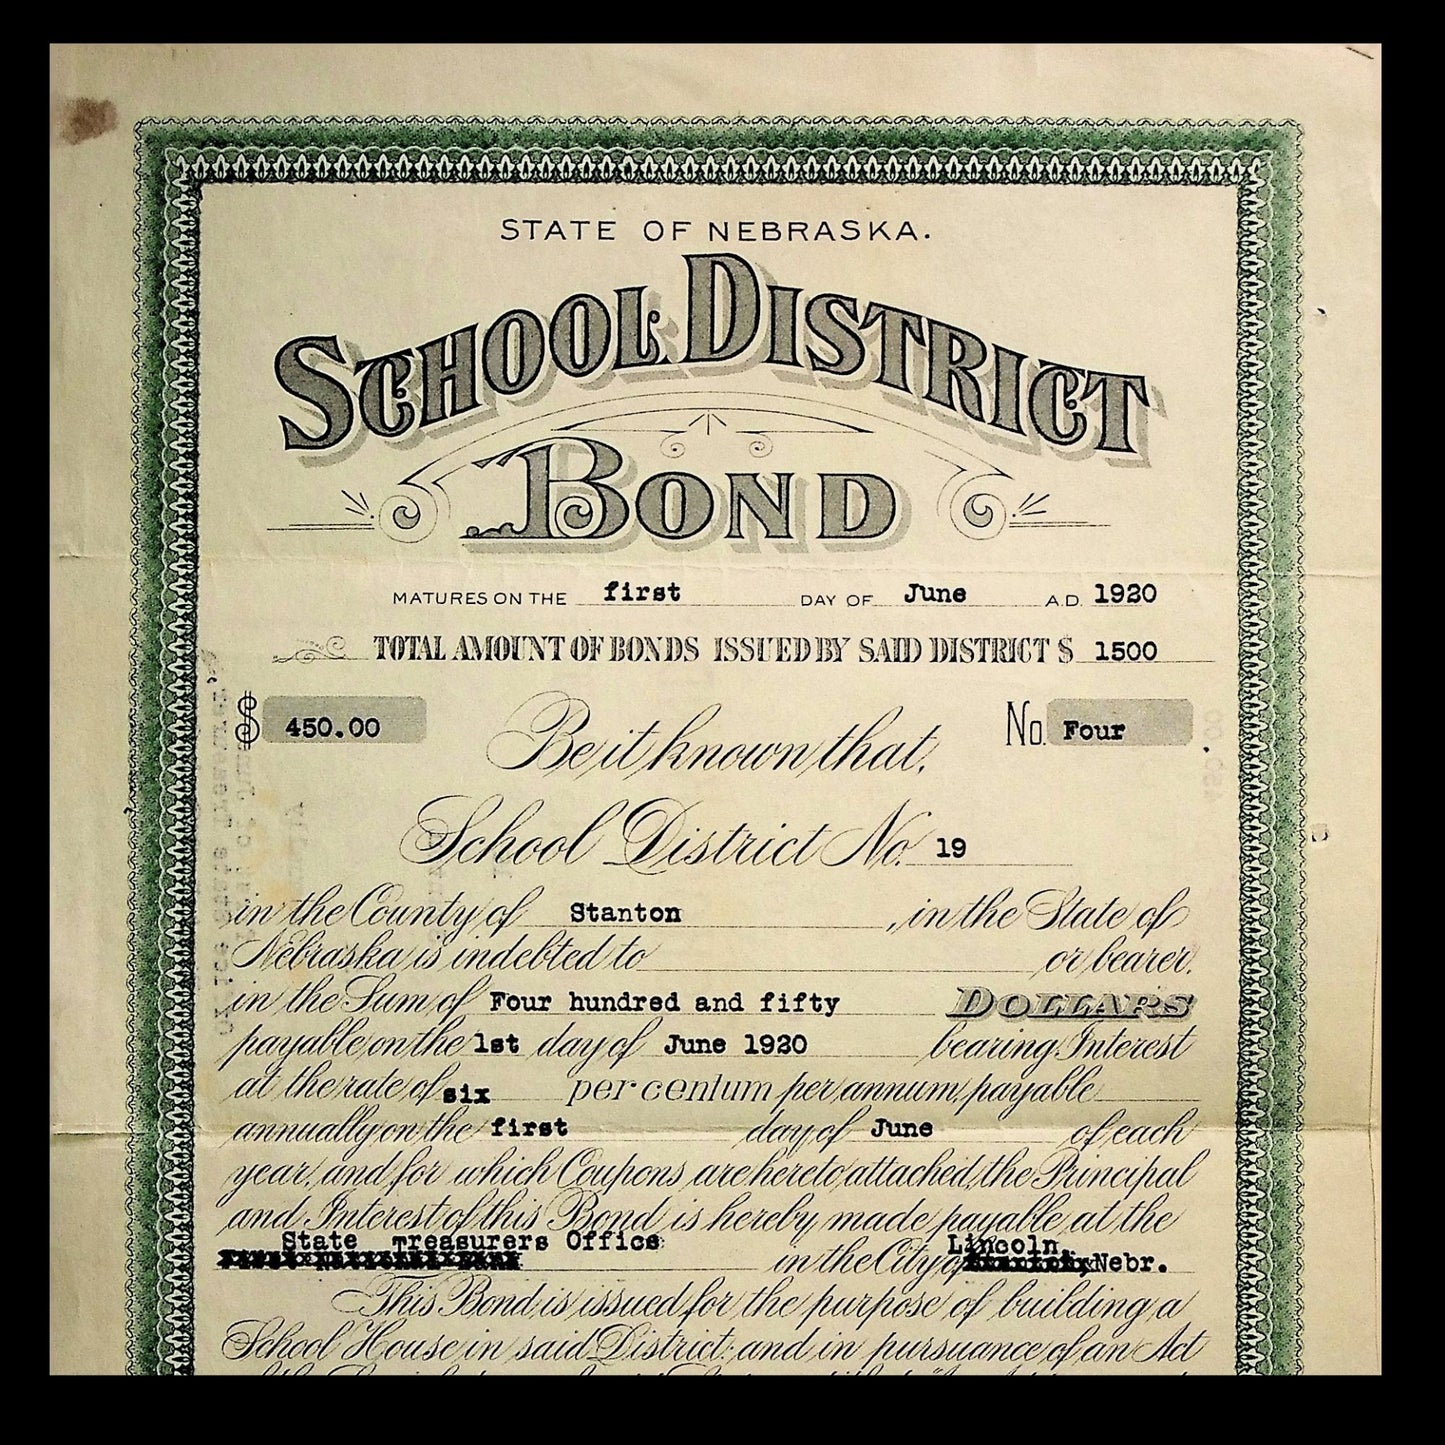 STATE OF NEBRASKA.
SCHOOL DISTRICT
BOND
MATURES ON THE first DAY OF June A.D. 1920
TOTAL AMOUNT OF BONDS ISSUED BY SAID DISTRICT $ 1500
$ 450.00
Be it known that,
No. Four
School District No. 19
in the County of Stanton, in the State of
Nebraska is indebted to or bearer,
in the Sum of Four hundred and fifty DOLLARS
payable on the 1st day of June 1920 bearing Interest
at the rate of six per centum per annum, payable
annually on the first day of June of each
year, and for which Coupons are hereto attached, the Principal
and Interest of this Bond is hereby made payable at the
State Treasurers Office Lincoln,
in the City of Nebr.
This Bond is issued for the purpose of building a
School House in said District; and in pursuance of an Act